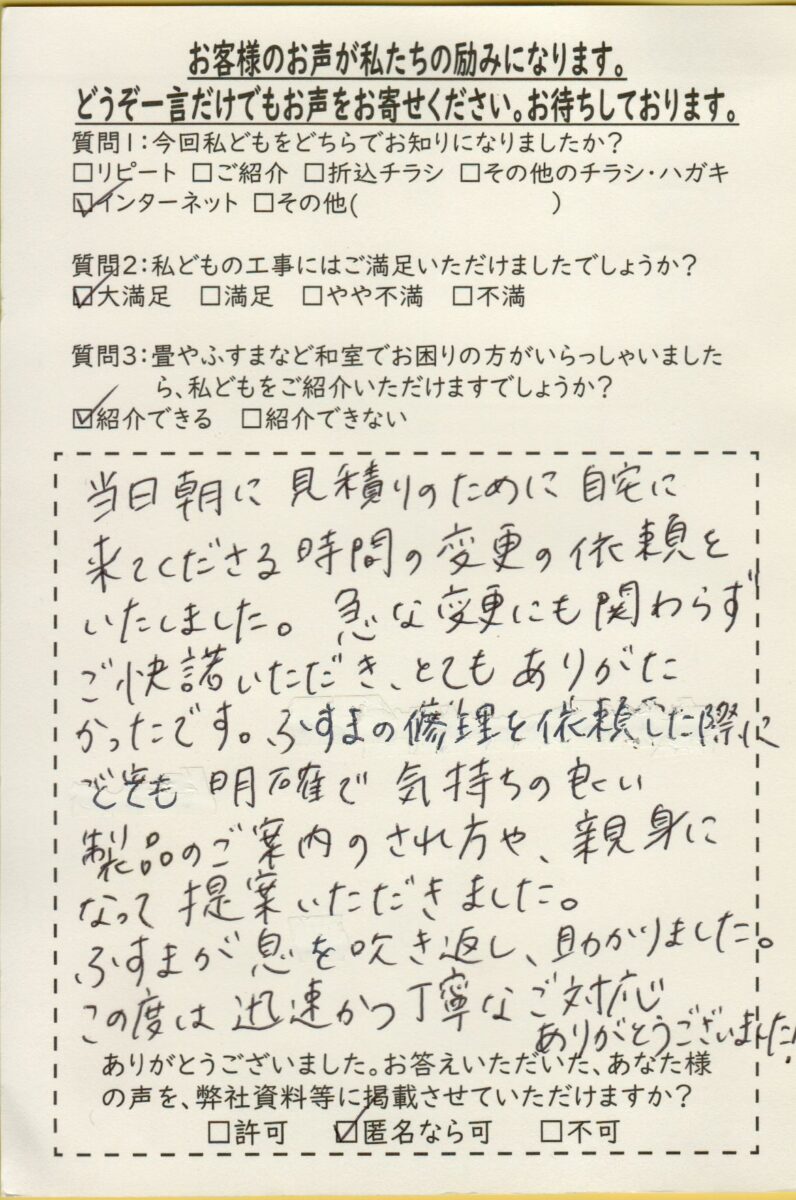 お客様のお声が私たちの励みになります。
どうぞ一言だけでもお声をお寄せください。お待ちしております。
質問1：今回私どもをどちらでお知りになりましたか？
□リピート □ご紹介 □折込チラシ □その他のチラシ・ハガキ
☑インターネット □その他(　　　　　　　　)
質問2：私どもの工事にはご満足いただけましたでしょうか？
☑大満足 □満足 □やや不満 □不満
質問3：畳やふすまなど和室でお困りの方がいらっしゃいました
ら、私どもをご紹介いただけますでしょうか？
☑紹介できる □紹介できない
当日朝に見積りのために自宅に
来てくださる時間の変更の依頼を
いたしました。急な変更にも関わらず
ご快諾いただき、とてもありがた
かったです。ふすまの修理を依頼した際に
とても明確で気持ちの良い
製品のご案内のされ方や、親身に
なって提案いただきました。
ふすまが息を吹き返し、助かりました。
この度は迅速かつ丁寧なご対応
ありがとうございました!
ありがとうございました。お答えいただいた、あなた様
の声を、弊社資料等に掲載させていただけますか？
□許可 ☑匿名なら可 □不可